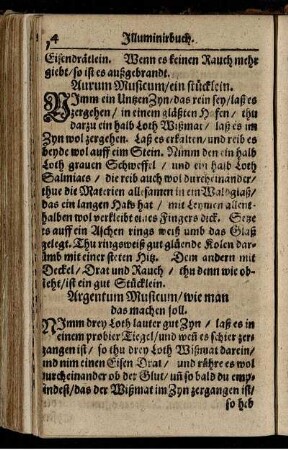 4 Illuminirbuch.
Eisendrätlein. Wenn es keinen Rauch mehr
giebt / so ist es außgebrandt.
Aurum Musicum / ein stücklein.
NImm ein Untzen Zyn / das rein sey / laß es
zergehen / in einem gläßten Hafen / thu
darzu ein halb Loth Wißmat / laß es im
Zyn wol zergehen. Laß es erkalten / und reib es
beyde wol auff eim Stein. Nimm den ein halb
Loth grauen Schweffel / und ein halb Loth
Salmiacs / die reib auch wol durcheinander /
thue die Materien allesamen in ein Waldglaß /
das ein langen Halß hat / mit Leymen allent-
halben wol verkleibt eines Fingers dick. Setze
es auff ein Aschen rings weiß umb das Glaß
gelegt. Thu ringsweiß gut glüende Kolen dar-
umb mit einer steten Hitz. Dem andern mit
Deckel / Drat und Rauch / thu denn wie ob-
steht / ist ein gut Stücklein.
Argentum Musicum / wie man
das machen soll.
NImm drey Loth lauter gut Zyn / laß es in
einem probier Tiegel / und weñ es schier zer-
gangen ist / so thu drey Loth Wißmat darein /
und nim einen Eisen Drat / und rühre es wol
durcheinander ob der Glut / uñ so bald du emp-
findest / das der Wißmat im Zyn zergangen ist /
so heb